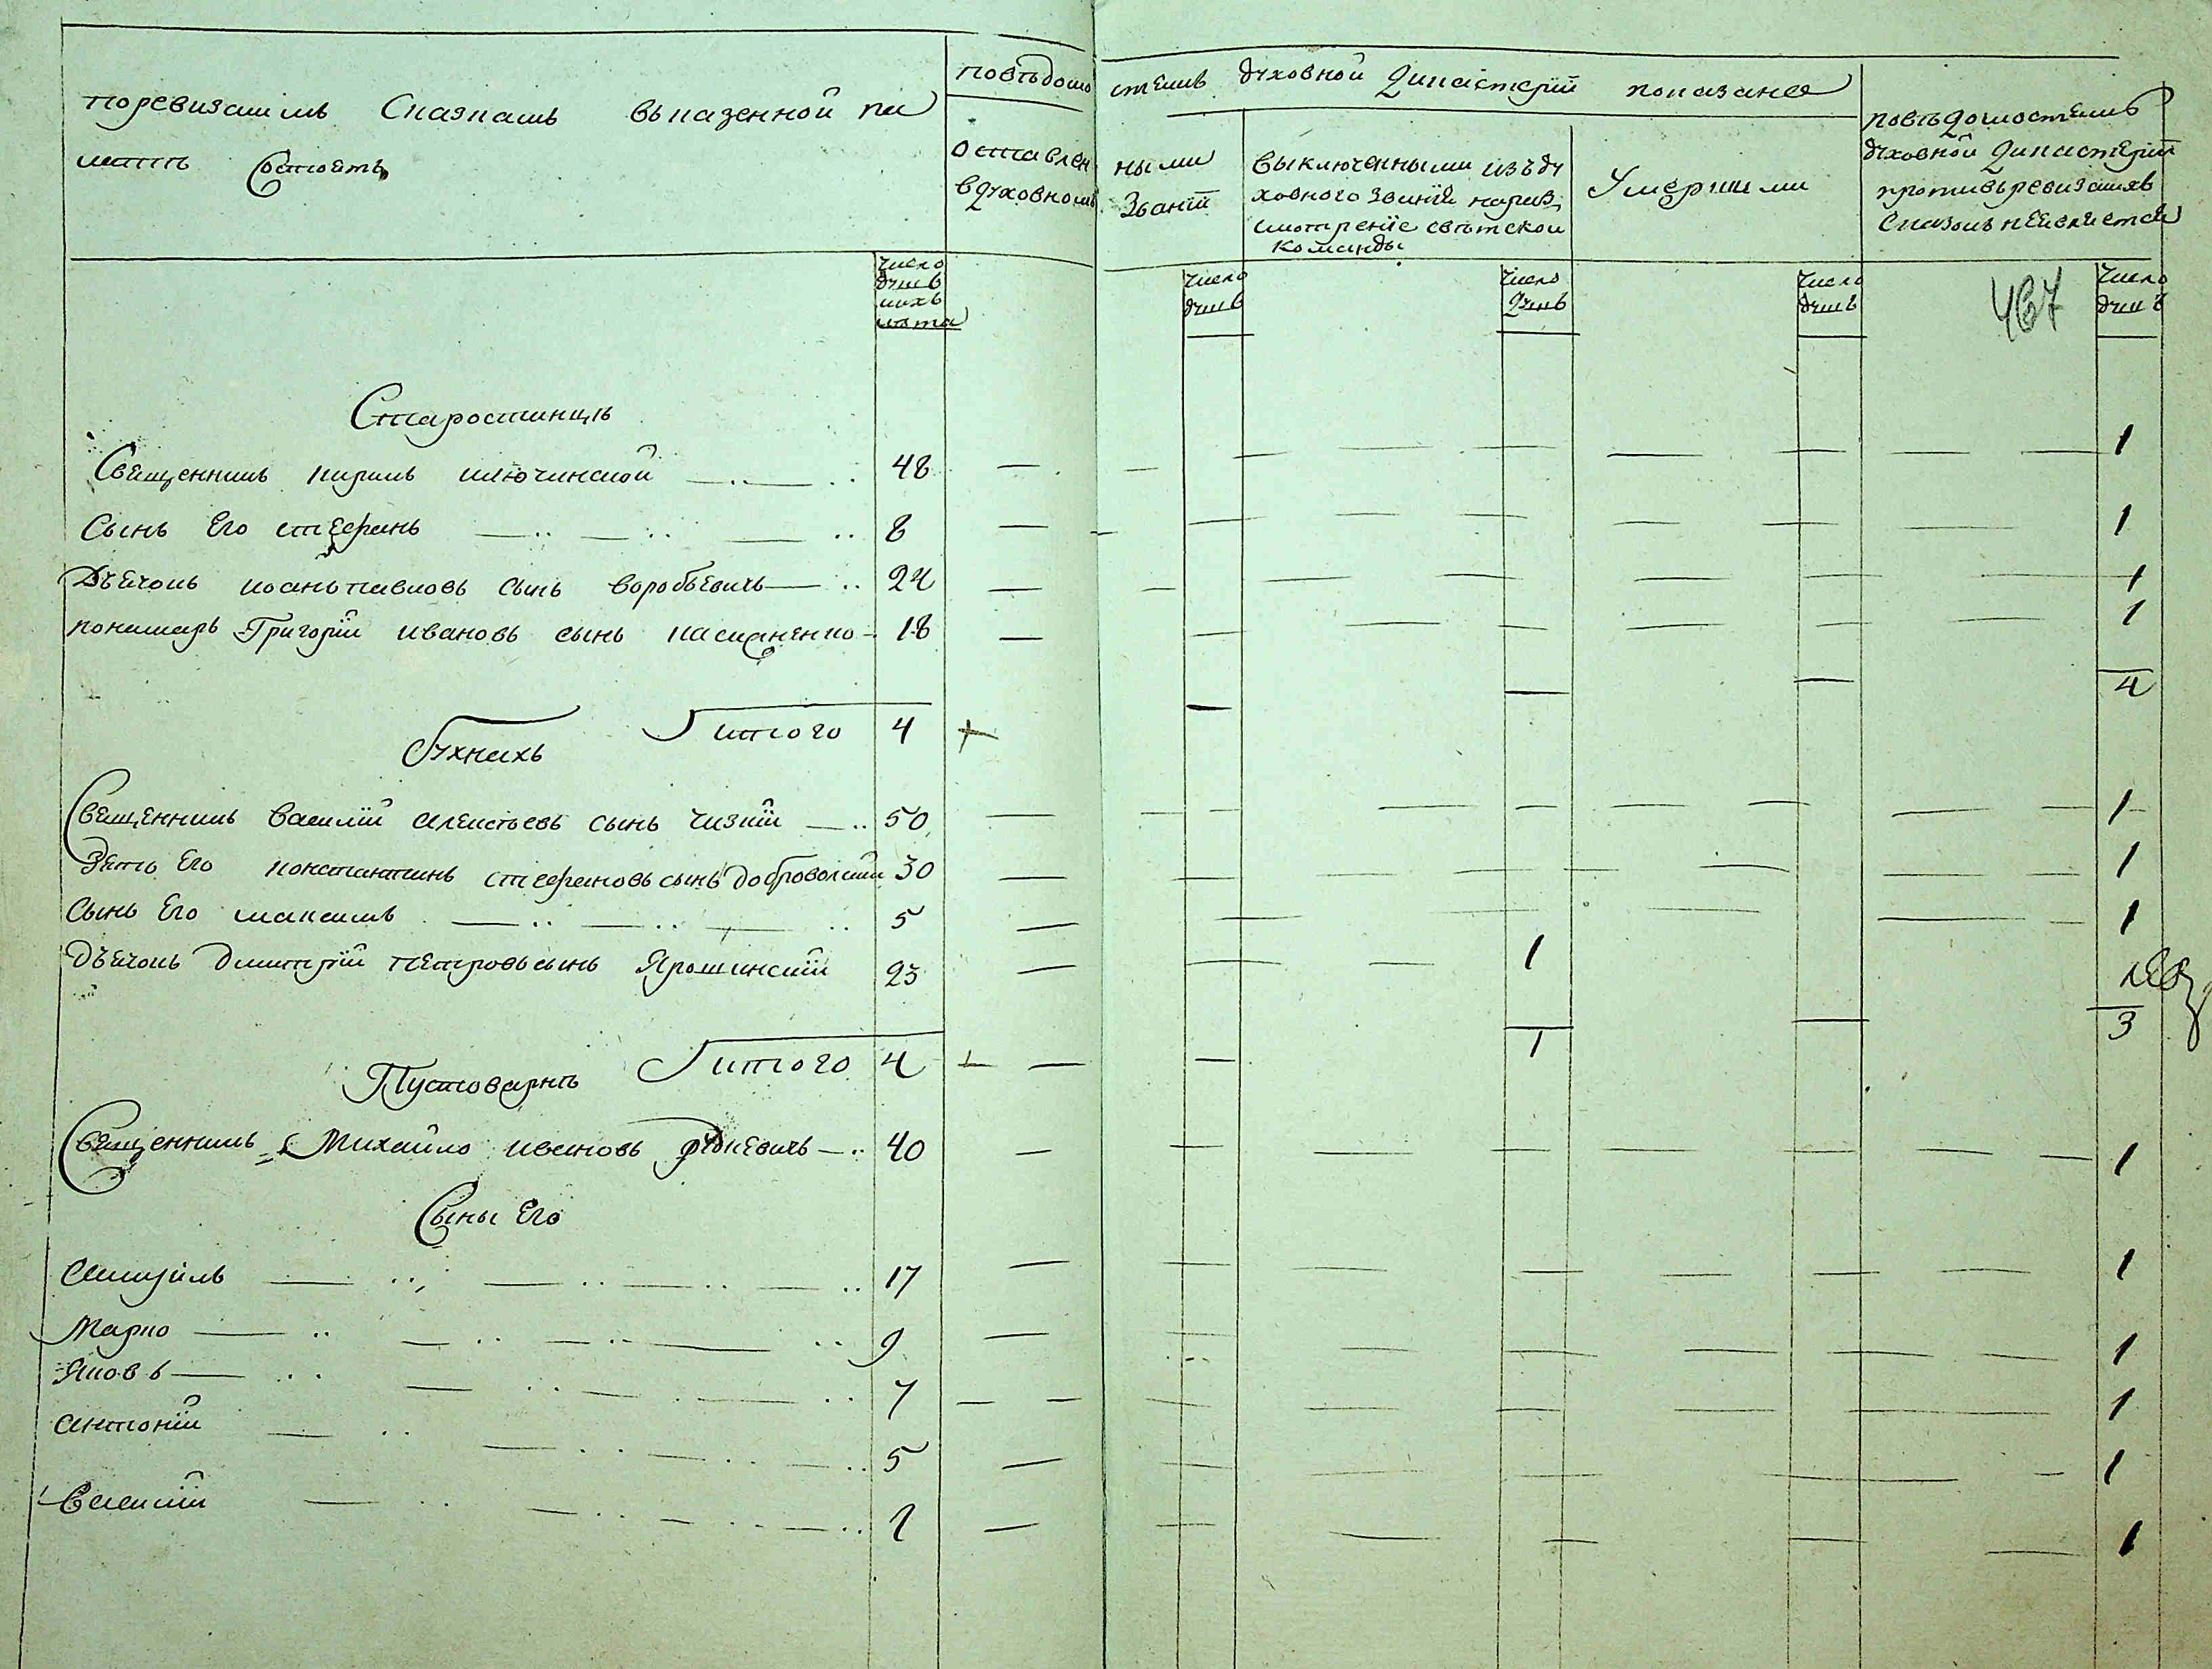 поревизскимъ Сказкамъ вьказенной па
латѣ Состоитъ
Число
душъ
ихъ
лѣта
повѣдомо стямъ духовной Дикастерій показанъ
оставлен ными
вдуховномъ Званіи
выключенными изъ ду
ховного званія наразъ
смотреніе свѣтской
команды
Умершими
повѣдомостямъ
духовной Дикастеріи
противъ ревизскихъ
Сказокъ неявляется
Число
душъ
Число
душъ
Число
душъ
Число
душъ
467
Старостинцѣ
Священникъ кирилъ ключинской 48 1
Сынъ Его стефанъ 8 1
Дьячокъ иоанъ павловъ сынъ воробьевичъ 24 1
пономарь Григорій ивановъ сынъ 18 1
итого 4 4
Гухнахъ
Священникъ василій алексѣевъ сынъ чизкій 50 1
Зять Его константинъ стефановъ сынъ доброволскій 30 1
Сынъ Его максимъ 5 1
дьячокъ димитрій петровъ сынъ Ярошинскій 23 1
итого 4 1 3
Пустоварнѣ
Священникъ Михайло ивановъ 40 1
Сыны Его
Самуилъ 17 1
Марко 9 1
Яковъ 7 1
антоній 5 1
Василій 2 1